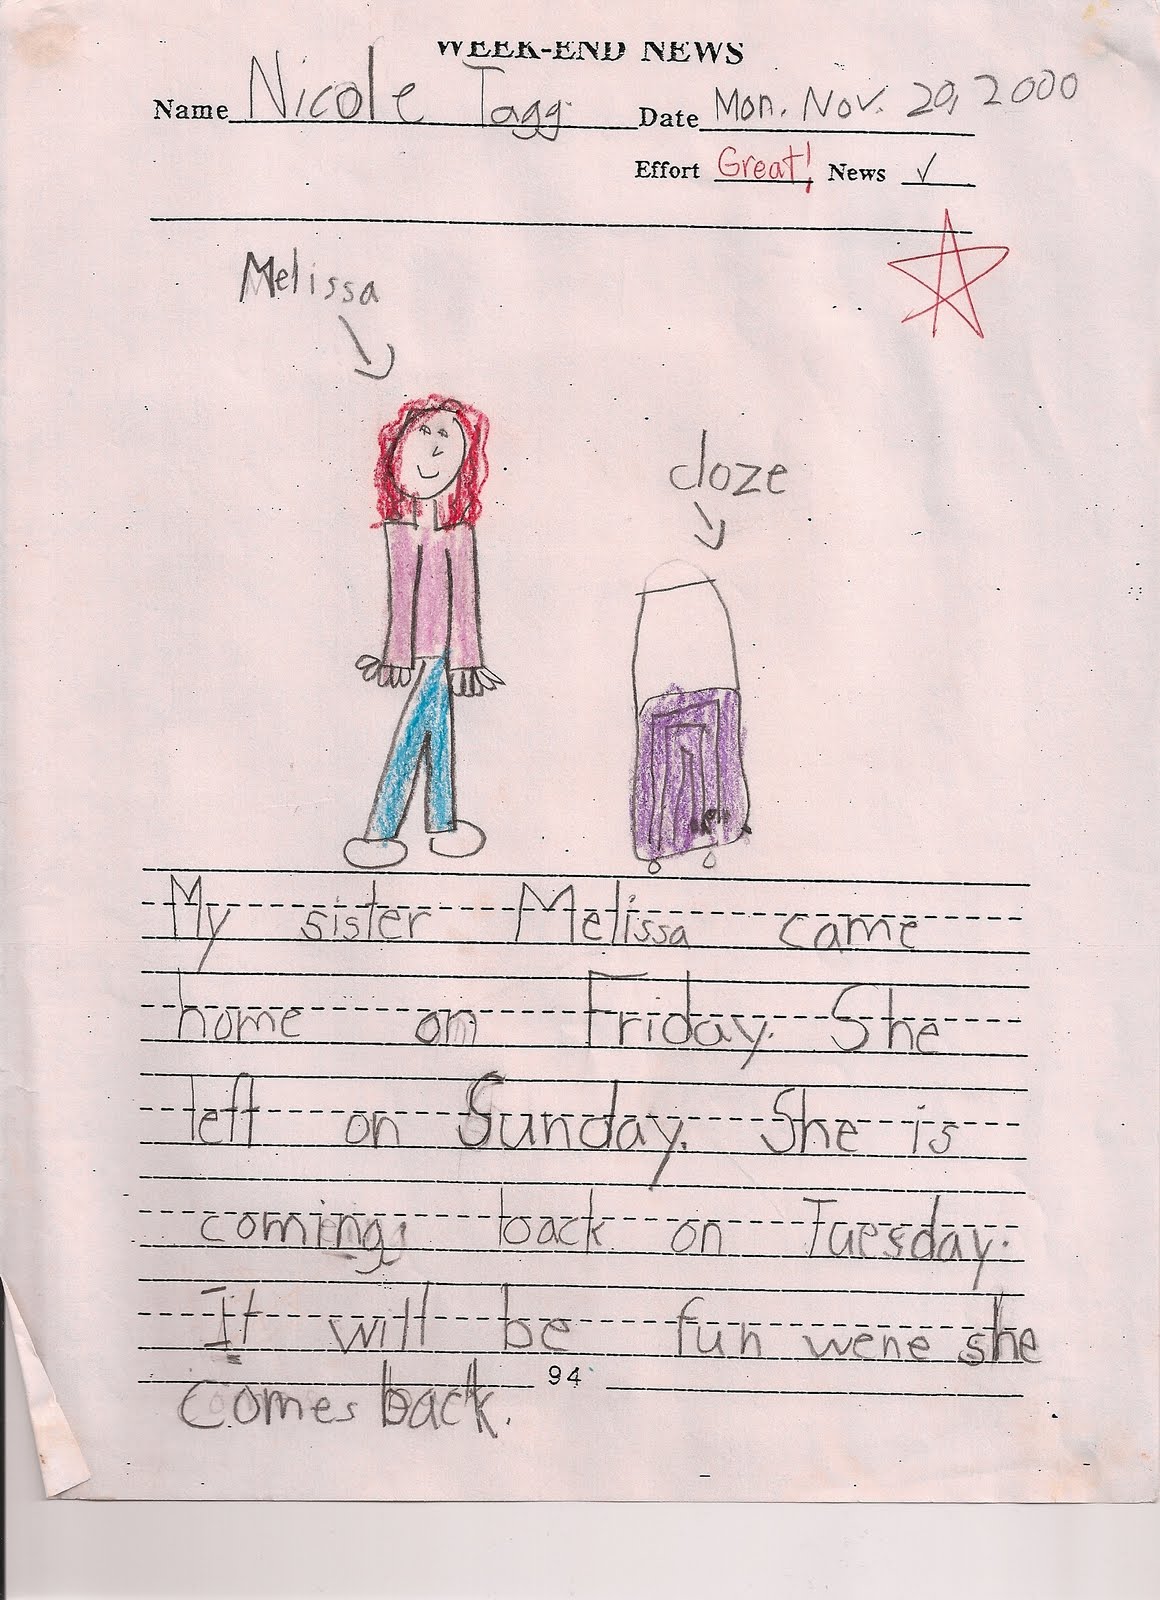 WEEK-END NEWS
Name Nicole Tagg Date Mon. Nov. 20, 2000
Effort Great! News ✓
Melissa
cloze
My sister Melissa came
home on Friday. She
left on Sunday. She is
coming back on Tuesday.
It will be fun wene she
94
comes back.